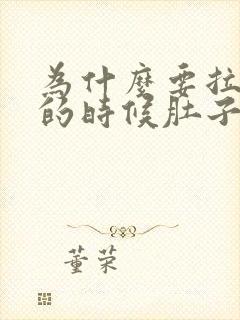 為什麼要拉
的時候肚子
董荣